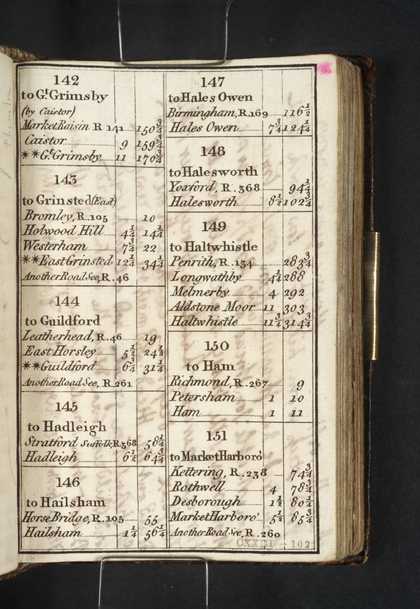 142
to Gt. Grimsby
(by Caistor)
Market Raisin R 141 150 3/4
Caistor 9 159 3/4
**Gt. Grimsby 11 170 3/4
143
to Grinsted (East)
Bromley, R. 105 10
Holwood Hill 4 1/4 14 1/4
Westerham 7 3/4 22
**East Grinsted 12 1/4 34 1/4
Another Road See, R. 46
144
to Guildford
Leatherhead, R. 46 19
East Horsley 5 1/2 24 1/2
**Guildford 6 3/4 31 1/4
Another Road See, R. 261
145
to Hadleigh
Stratford Suffolk R 368 58 1/4
Hadleigh 6 1/2 64 3/4
146
to Hailsham
Horse Bridge, R. 105 55
Hailsham 1 1/4 56 1/4
147
to Hales Owen
Birmingham, R. 169 116 1/2
Hales Owen 7 3/4 124 1/4
148
to Halesworth
Yoxford, R. 368 94 1/4
Halesworth 8 1/2 102 3/4
149
to Haltwhistle
Penrith, R. 134 283 3/4
Longwathby 4 1/4 288
Melmerby 4 292
Aldstone Moor 11 303
Haltwhistle 11 3/4 314 3/4
150
to Ham
Richmond, R. 267 9
Petersham 1 10
Ham 1 11
151
to Market Harboro'
Kettering, R. 238 74 3/4
Rothwell 4 78 3/4
Desborough 1 3/4 80 1/2
Market Harboro' 5 1/4 85 3/4
Another Road See, R. 260
102